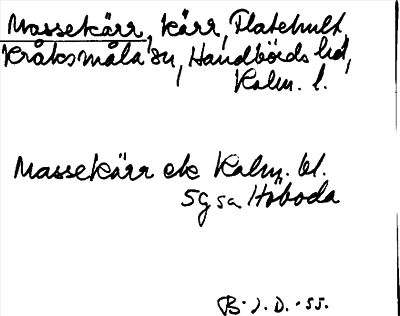 Massekärr, kärr, Flatehult
Kråksmåla sn, Handbörds hd,
Kalm. l.
Massekärr ek Kalm. bl.
5g sa Höboda
B. J. D. -55.